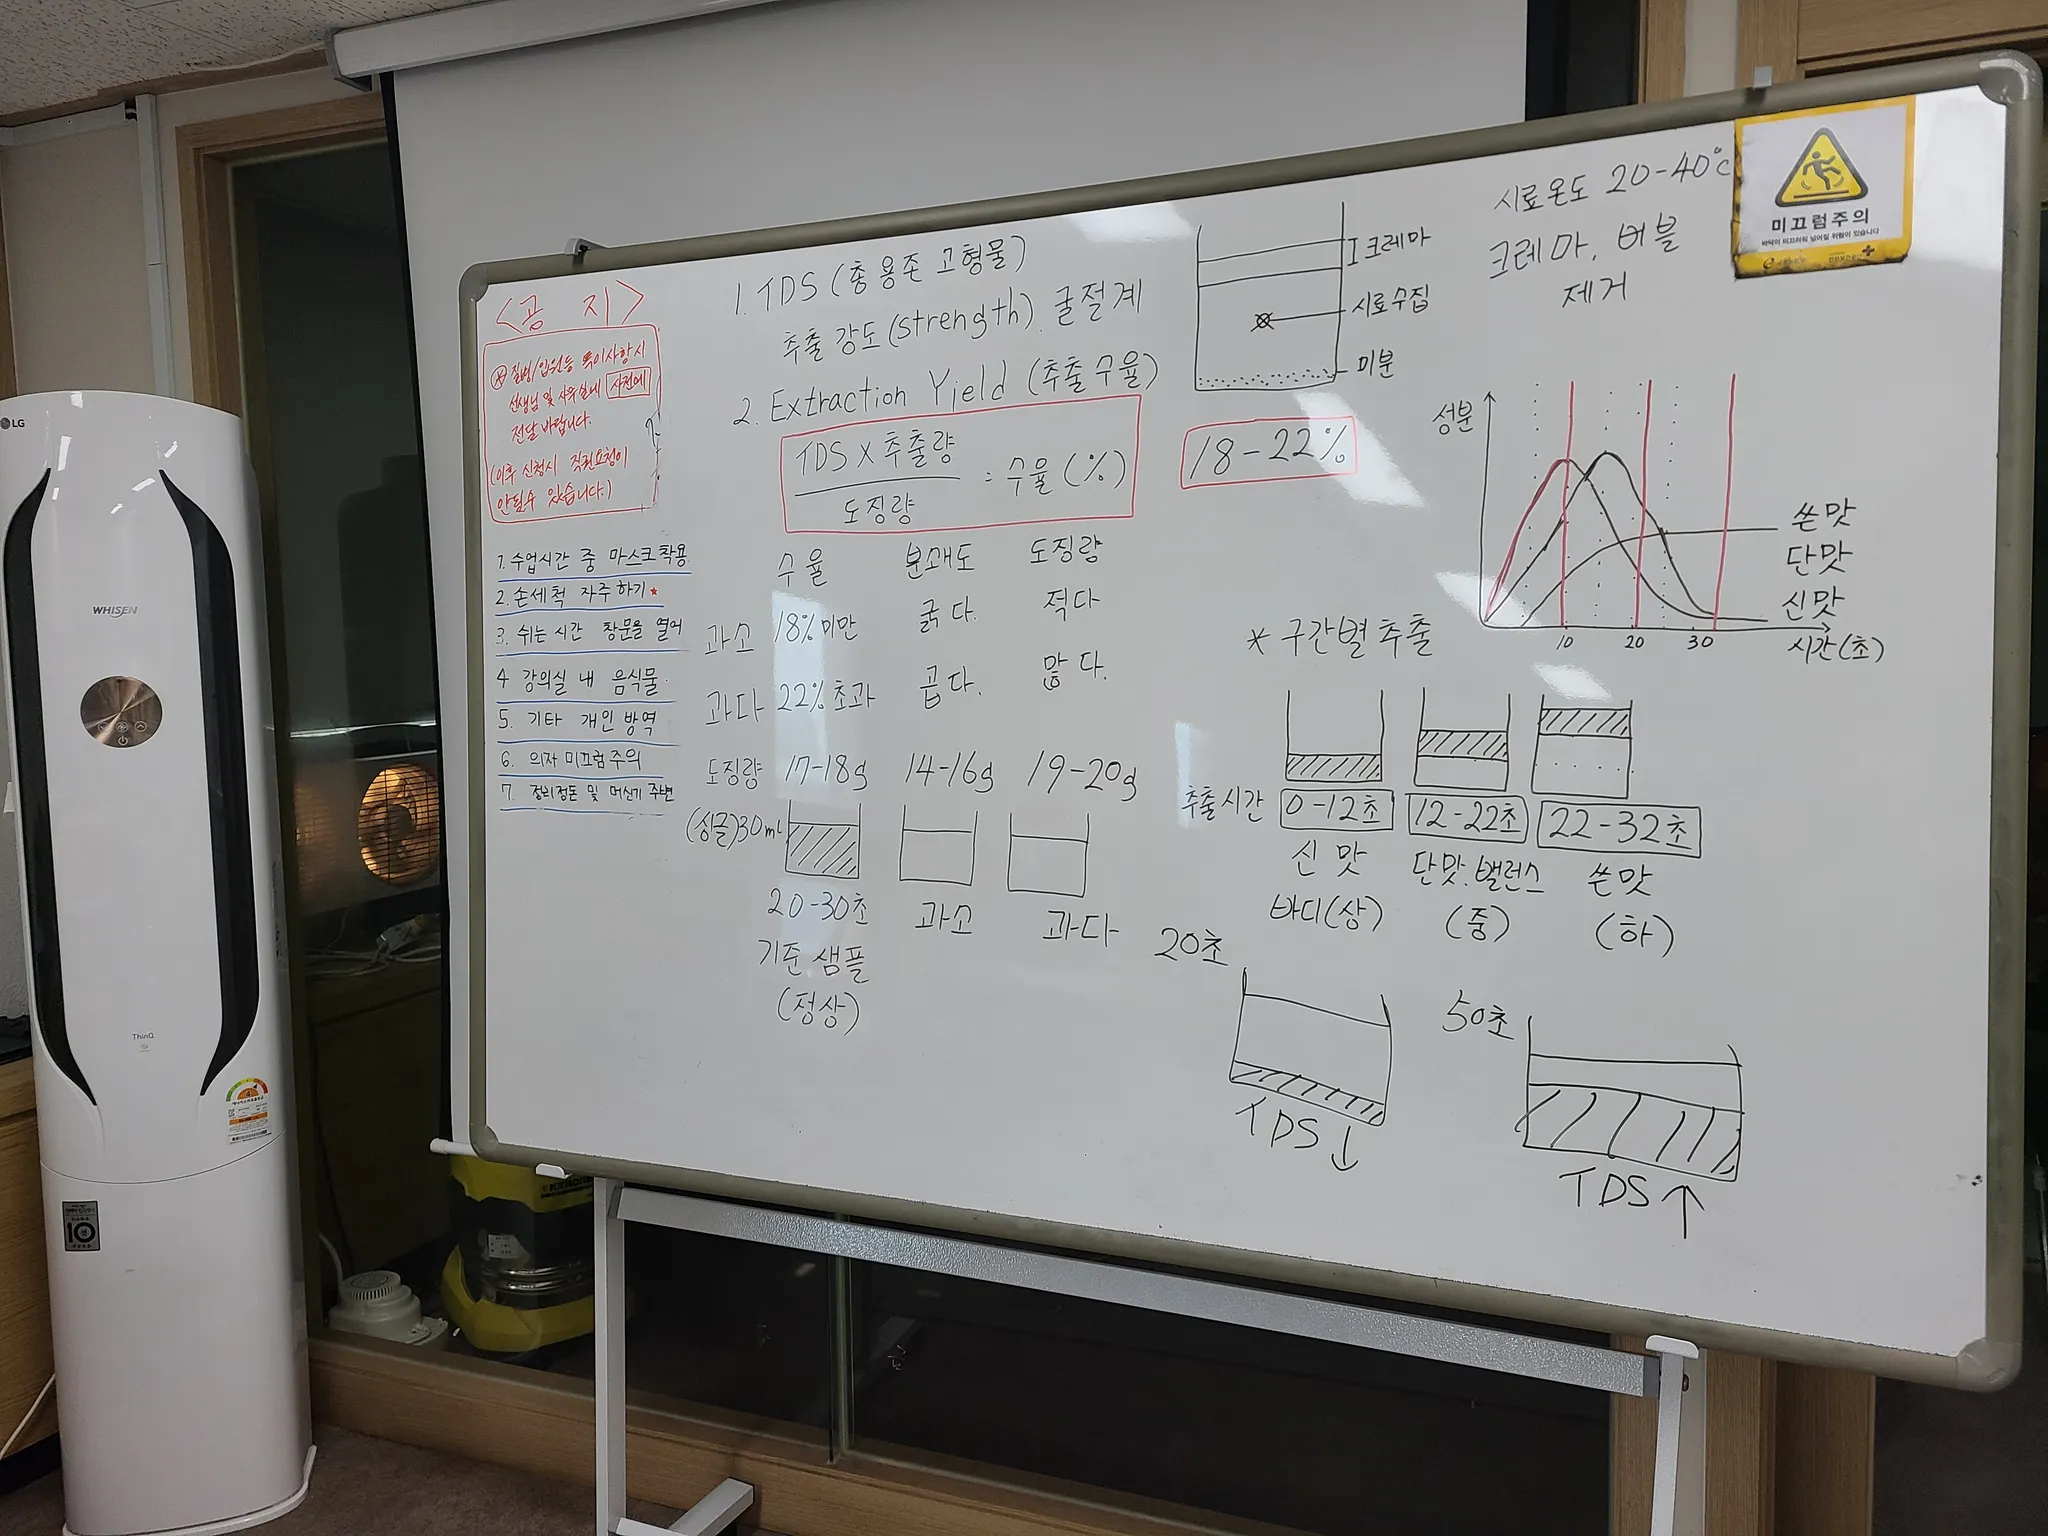 LG
WHISEN
ThinQ
10
<공 지>
질병/입원등 특이사항시
선생님 및 사무실내 사전에
전달 바랍니다.
(이후 신청시 직권요청이
안될수 있습니다.)
1. 수업시간 중 마스크착용
2. 손세척 자주하기★
3. 쉬는시간 창문을 열어
4 강의실 내 음식물.
5. 기타 개인 방역
6. 의자 미끄럼주의
7. 정리정돈 및 머신기 주변
1. TDS (총 용존 고형물)
추출 강도 (strength). 굴절계
2. Extraction Yield (추출 수율)
TDS X 추출량
도징량
= 수율 (%)
18-22%
수율 분쇄도 도징량
과소 18%미만 굵다. 적다
과다 22%초과 곱다. 많다.
도징량 17-18g 14-16g 19-20g
(싱글)30ml
20-30초 과소 과다
기준 샘플
(정상)
크레마
시료수집
미분
시료온도 20-40℃
크레마, 버블
제거
미끄럼주의
바닥이 미끄러워 넘어질 위험이 있습니다
성분
쓴맛
단맛
신맛
10 20 30 시간(초)
* 구간별 추출
추출시간 0-12초 12-22초 22-32초
신 맛 단맛. 밸런스 쓴맛
바디(상) (중) (하)
20초
TDS ↓
50초
TDS ↑